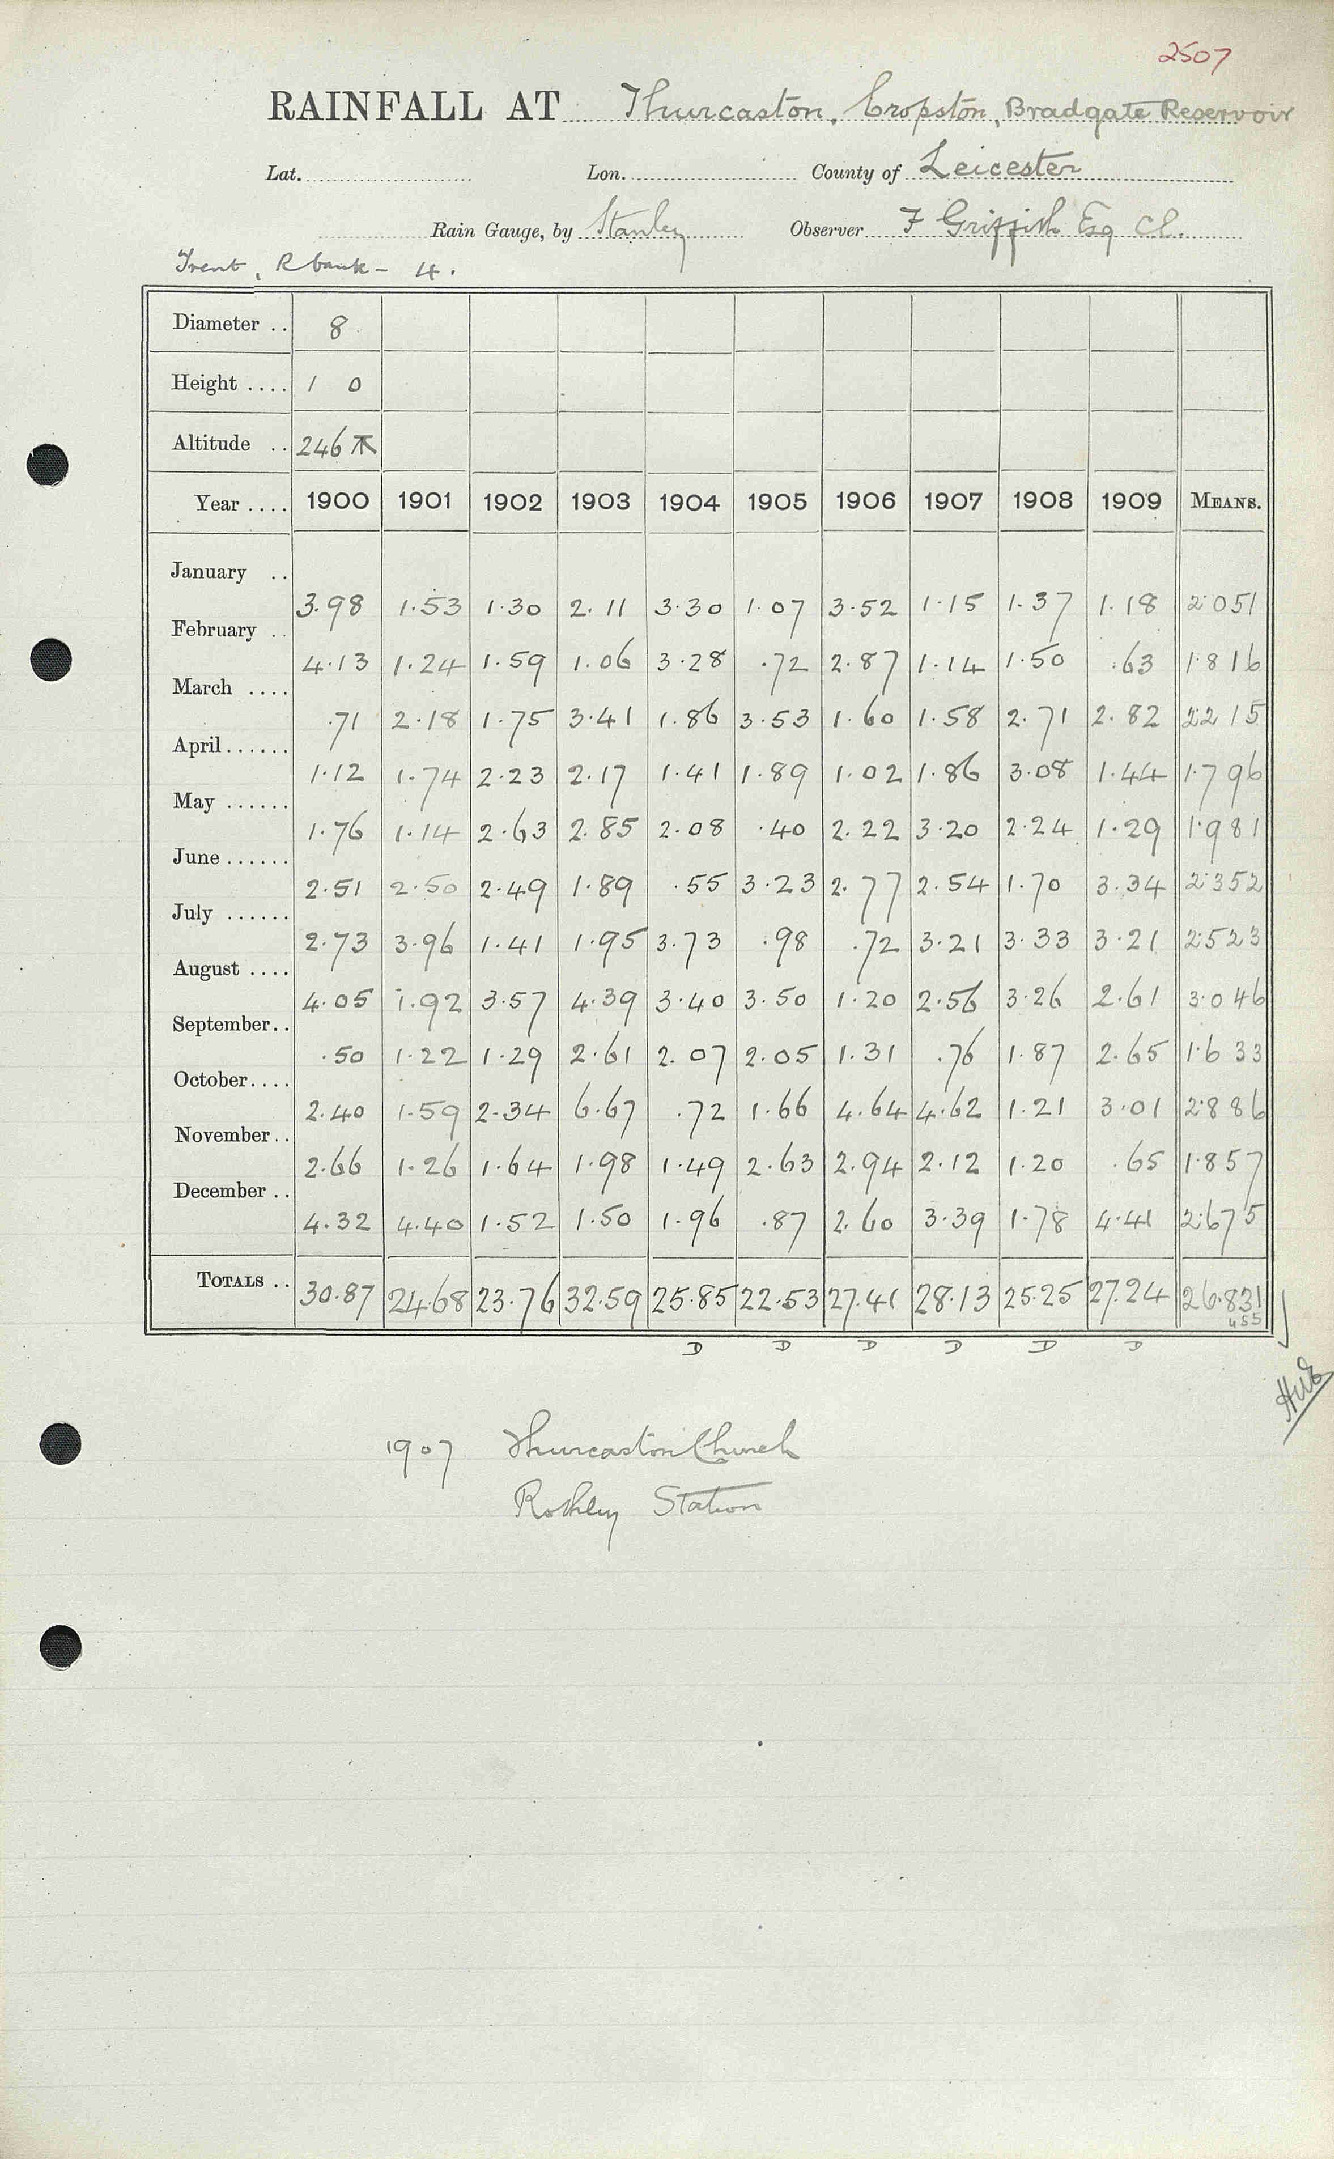 2507
RAINFALL AT Thurcaston, Cropston, Bradgate Reservoir
Lat. Lon. County of Leicester
Rain Gauge, by Stanley Observer F Griffith Esq CE.
Trent, R bank - 4.
Diameter .. 8
Height .... 1 0
Altitude .. 246
Year .... 1900 1901 1902 1903 1904 1905 1906 1907 1908 1909 MEANS.
January .. 3.98 1.53 1.30 2.11 3.30 1.07 3.52 1.15 1.37 1.18 2.051
February .. 4.13 1.24 1.59 1.06 3.28 .72 2.87 1.14 1.50 .63 1.816
March .... .71 2.18 1.75 3.41 1.86 3.53 1.60 1.58 2.71 2.82 2.215
April...... 1.12 1.74 2.23 2.17 1.41 1.89 1.02 1.86 3.08 1.44 1.796
May ...... 1.76 1.14 2.63 2.85 2.08 .40 2.22 3.20 2.24 1.29 1.981
June ...... 2.51 2.50 2.49 1.89 .55 3.23 2.77 2.54 1.70 3.34 2.352
July ...... 2.73 3.96 1.41 1.95 3.73 .98 .72 3.21 3.33 3.21 2.523
August .... 4.05 1.92 3.57 4.39 3.40 3.50 1.20 2.56 3.26 2.61 3.046
September.. .50 1.22 1.29 2.61 2.07 2.05 1.31 .76 1.87 2.65 1.633
October.... 2.40 1.59 2.34 6.67 .72 1.66 4.64 4.62 1.21 3.01 2.886
November.. 2.66 1.26 1.64 1.98 1.49 2.63 2.94 2.12 1.20 .65 1.857
December .. 4.32 4.40 1.52 1.50 1.96 .87 2.60 3.39 1.78 4.41 2.675
TOTALS .. 30.87 24.68 23.76 32.59 25.85 22.53 27.41 28.13 25.25 27.24 26.831
455
D D D D D D
1907 Thurcaston Church
Rothley Station